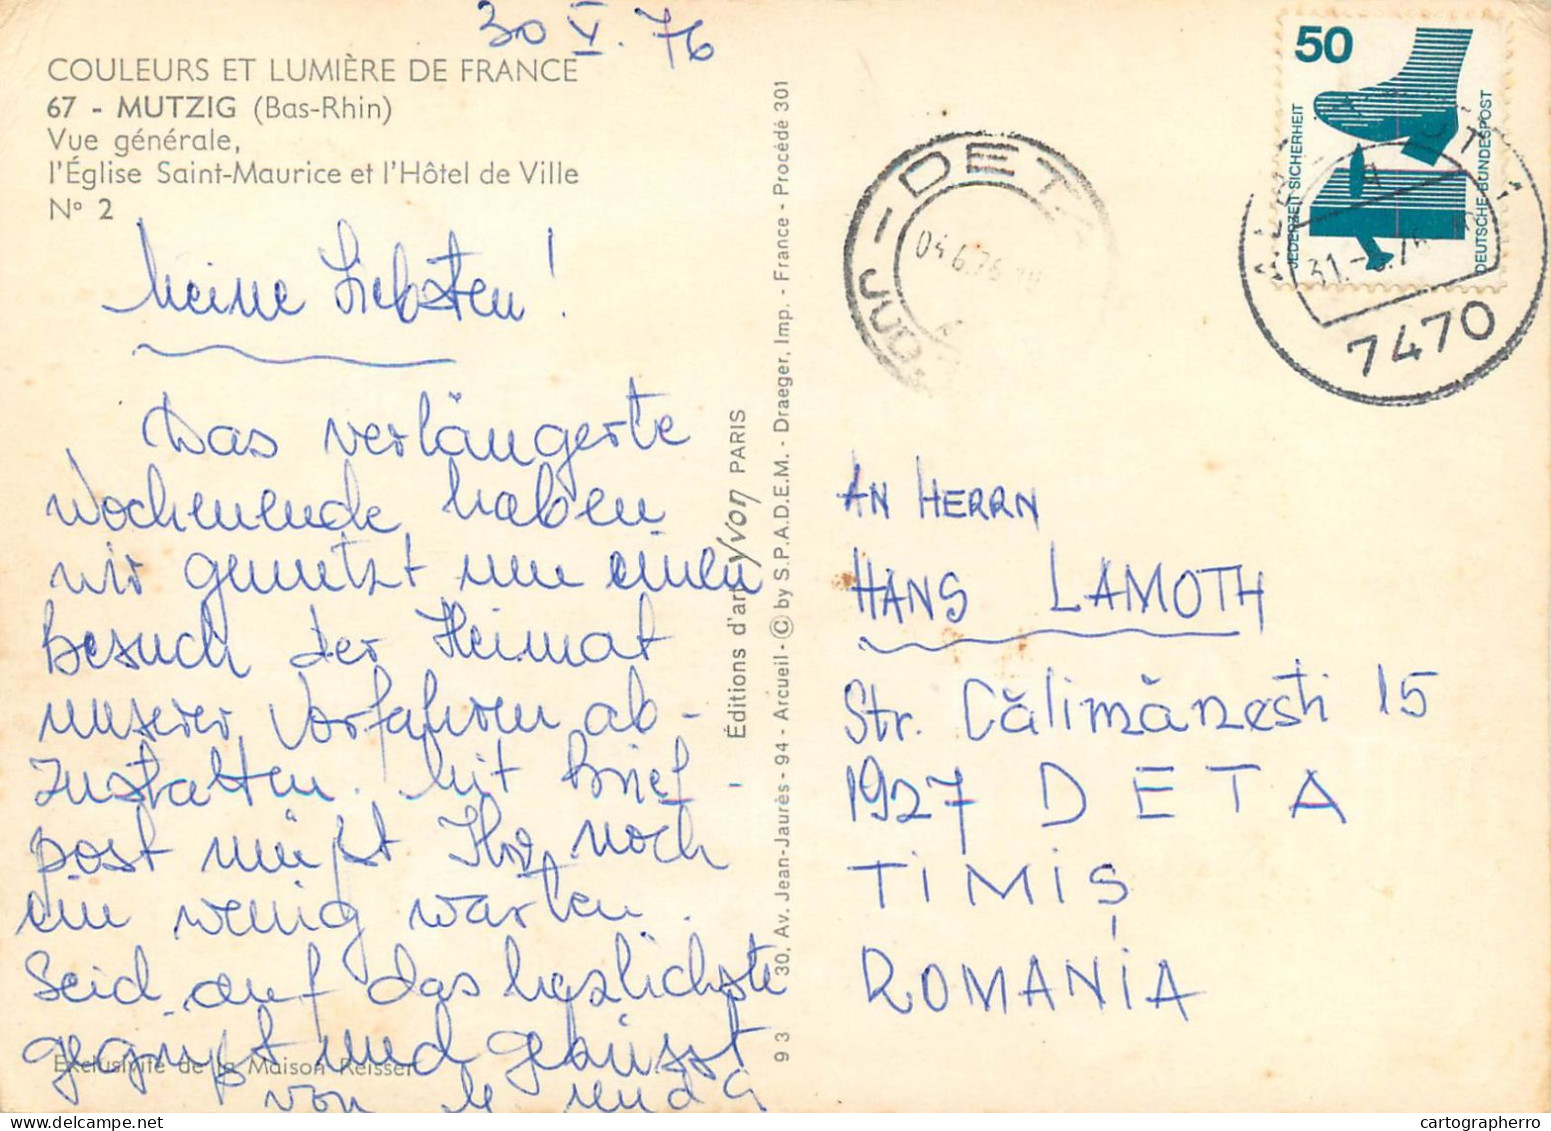 30 V. 76
COULEURS ET LUMIÈRE DE FRANCE
67 - MUTZIG (Bas-Rhin)
Vue générale,
l'Église Saint-Maurice et l'Hôtel de Ville
Nº 2
Meine Liebsten!
Das verlängerte
Wochenende haben
wir genutzt um einen
Besuch der Heimat
unserer Vorfahren ab-
zustatten. Mit Brief-
post müßt Ihr noch
ein wenig warten.
Seid auf das herzlichste
gegrüßt und geküsst
von M und G
Exclusivité de la Maison Reisser
Éditions d'art Yvon PARIS
93 30, Av. Jean-Jaurès - 94 - Arcueil - © by S.P.A.D.E.M. - Draeger, Imp. - France - Procédé 301
DETA
JUD.
04.6.76
50
JEDERZEIT SICHERHEIT
DEUTSCHE BUNDESPOST
7470
AN HERRN
HANS LAMOTH
Str. Călimănești 15
1927 DETA
TIMIȘ
ROMANIA
cartographerro